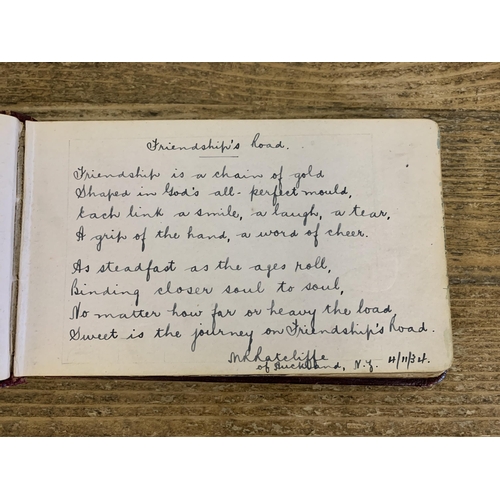 Friendship's Road.
Friendship is a chain of gold
Shaped in God's all-perfect mould,
Each link a smile, a laugh, a tear,
A grip of the hand, a word of cheer.
As steadfast as the ages roll,
Binding closer soul to soul,
No matter how far or heavy the load
Sweet is the journey on Friendship's Road.
Ratcliffe
of Auckland, N.Z. 4/11/34.